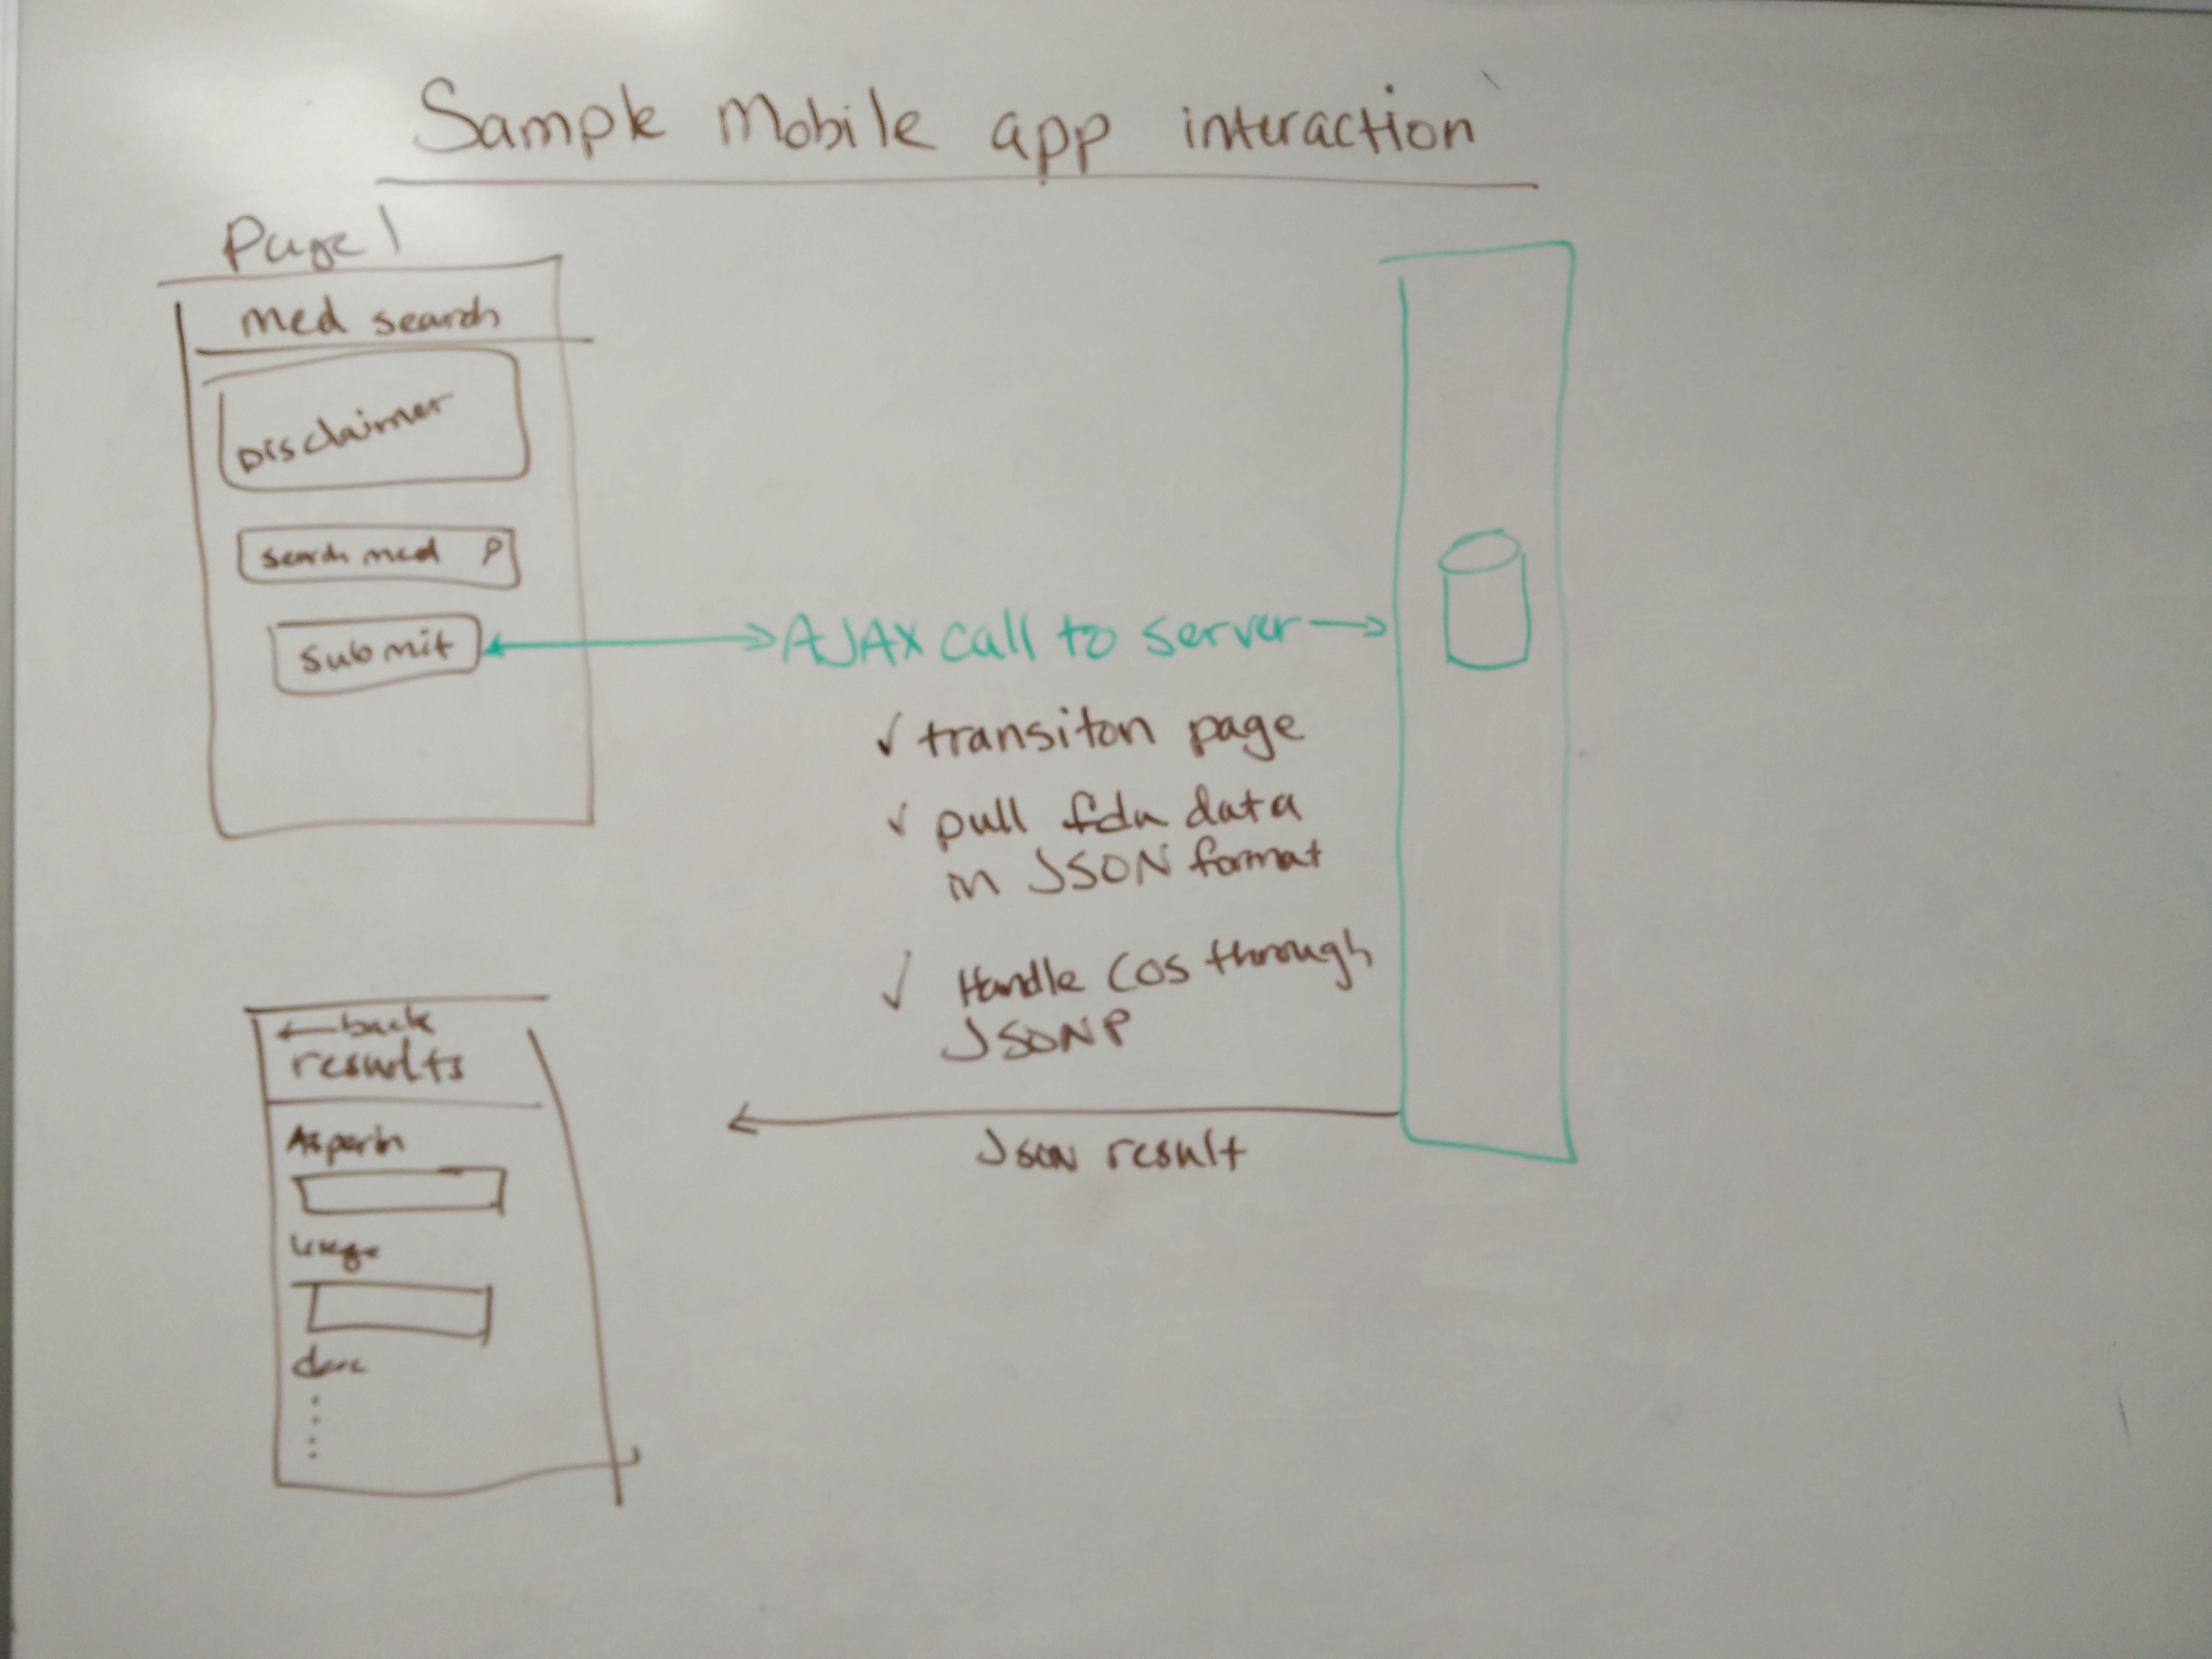 Sample Mobile app interaction
Page 1
med search
Disclaimer
search med
submit
AJAX call to server
✓ transiton page
✓ pull fda data
in JSON format
✓ Handle COS through
JSONP
Json result
←back
results
Asperin
usage